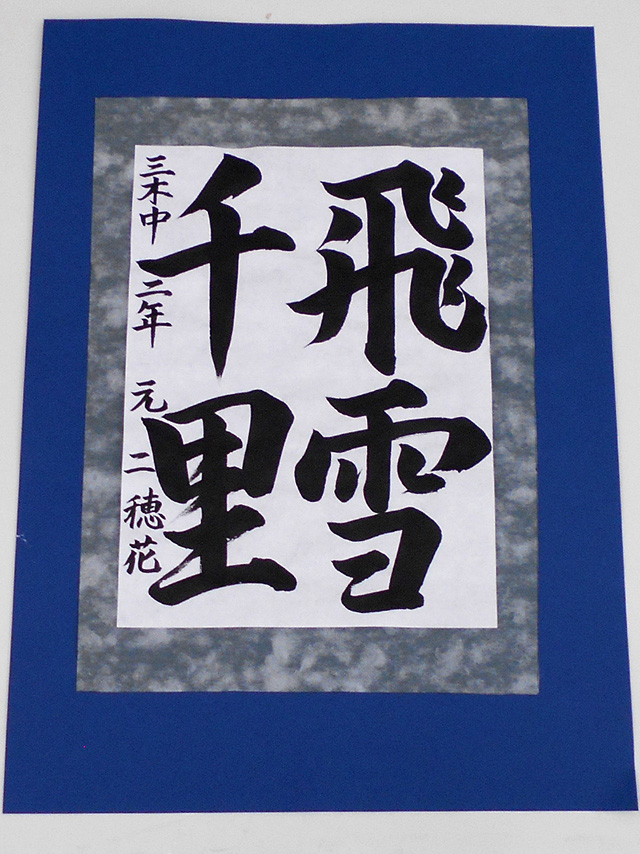 飛雪
千里
三木中 二年 元 二穂花